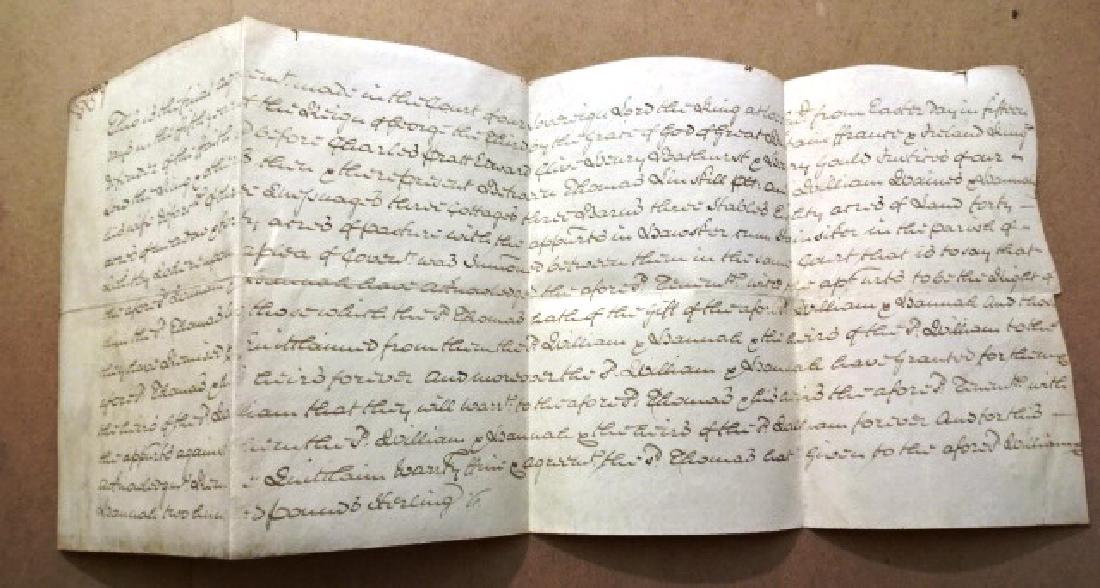 This is the final agreement made in the Court of our Sovereign Lord the King at from Easter Day in fifteen
days in the fifth year of the Reign of George the Third by the Grace of God of Great Britain ffrance & Ireland King
Defender of the faith before Charles Pratt Edward Clive Henry Bathurst & Henry Gould Justices of our
Lord the King & others then & there present Between Thomas Linskill Plt and William & Hannah
his wife Deforcts of three Messuages three Cottages three Barns three Stables Eighty acres of Land forty
acres of meadow & forty acres of pasture with the appurts in Hawsker cum Stainsiker in the parish of
Whitby Whereupon a plea of Covent was Summoned between them in the same Court that is to say that
the aforesd William & Hannah have acknowledged the aforesd Tenemts with the appurts to be the Right of
him the sd Thomas as those which the sd Thomas hath of the gift of the aforesd William & Hannah And those
they have Remised & Quitclaimed from them the sd William & Hannah & the heirs of the sd William to the
aforesd Thomas & his heirs forever And moreover the sd William & Hannah have Granted for them &
the heirs of the sd William that they will warrt to the aforesd Thomas & his heirs the aforesd Tenemts with
the appurts against them the sd William & Hannah & the heirs of the sd William forever And for this
acknowledgmt Remise Quitclaim Warrty ffine & agreemt the sd Thomas hath given to the aforesd William &
Hannah two hundred pounds sterling